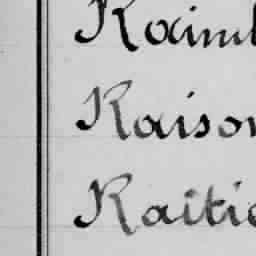 Raim
Raison
Raitie